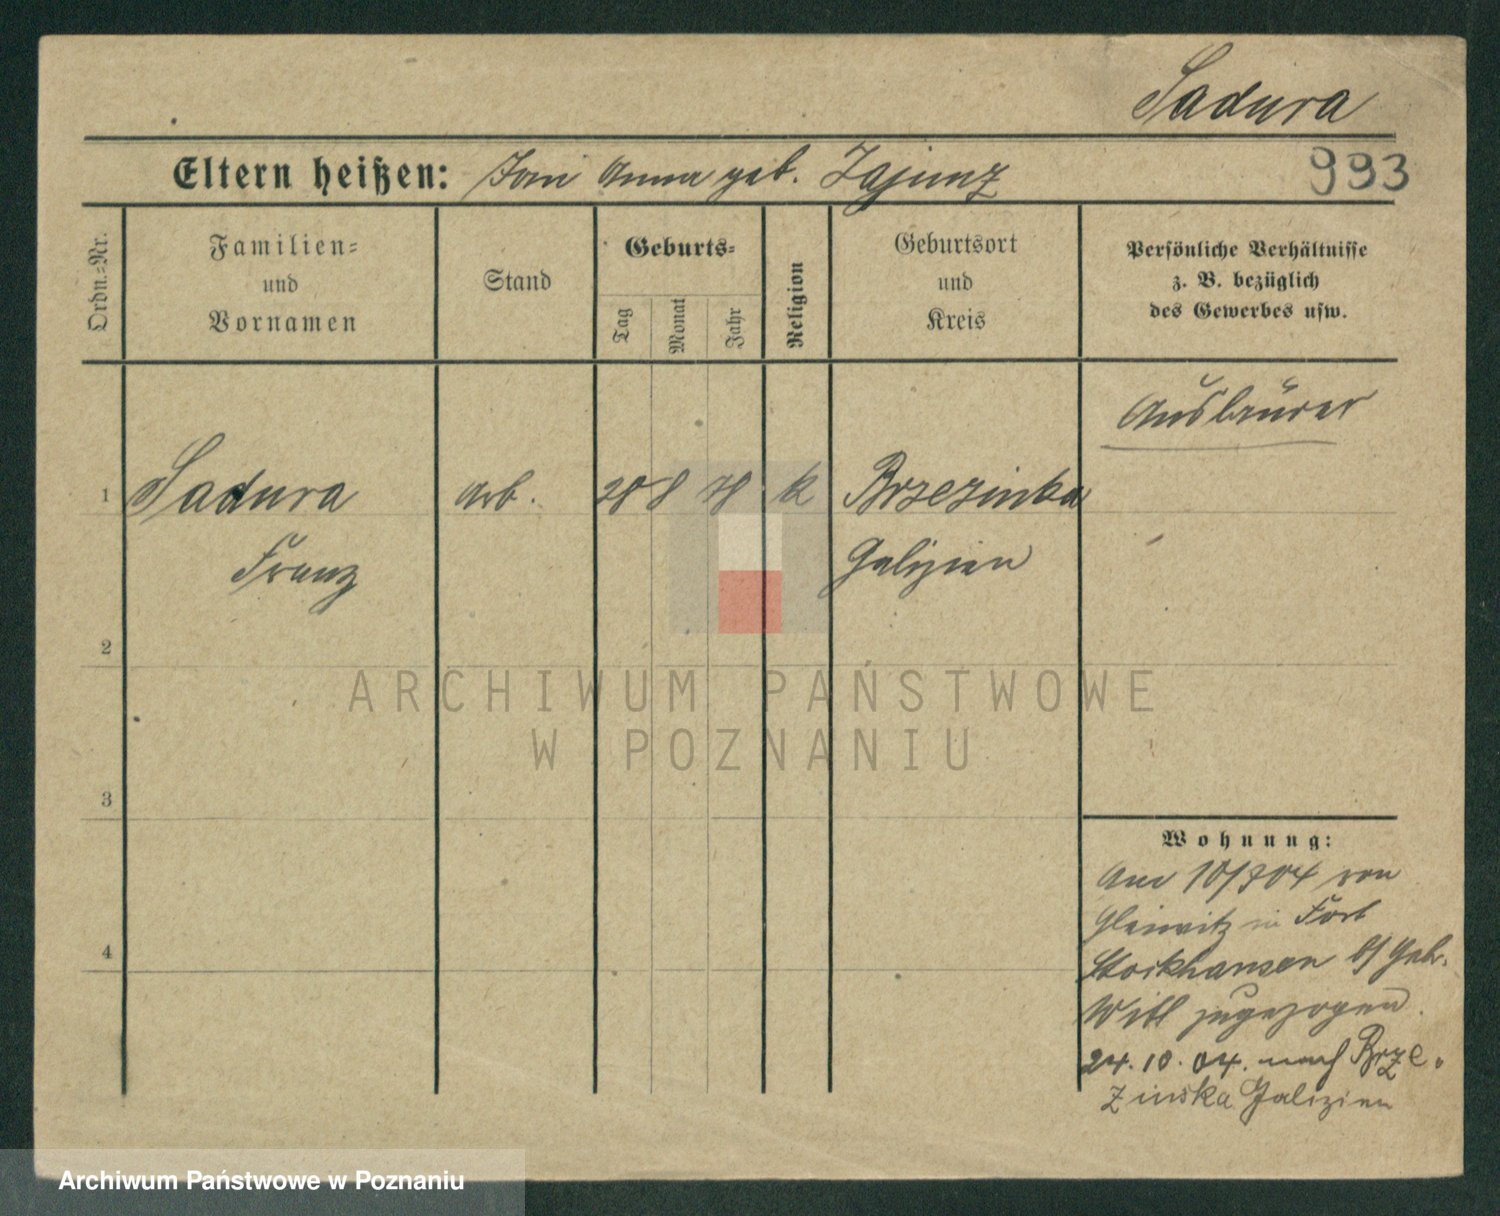 Sadura
Eltern heißen: Anna geb. Zajunz
993
Ordn.-Nr.
Familien-
und
Vornamen
Stand
Geburts-
Tag
Monat
Jahr
Religion
Geburtsort
und
Kreis
Persönliche Verhältnisse
z. B. bezüglich
des Gewerbes usw.
1
Sadura
Franz
Arb.
8
78
k
Brzezinka
Galizien
2
3
4
Wohnung:
von
Gleiwitz in Fort
Stockhausen b/ Gebr.
zugezogen.
24.10.04. nach Brze-
zinska Galizien
ARCHIWUM PAŃSTWOWE
W POZNANIU
Archiwum Państwowe w Poznaniu